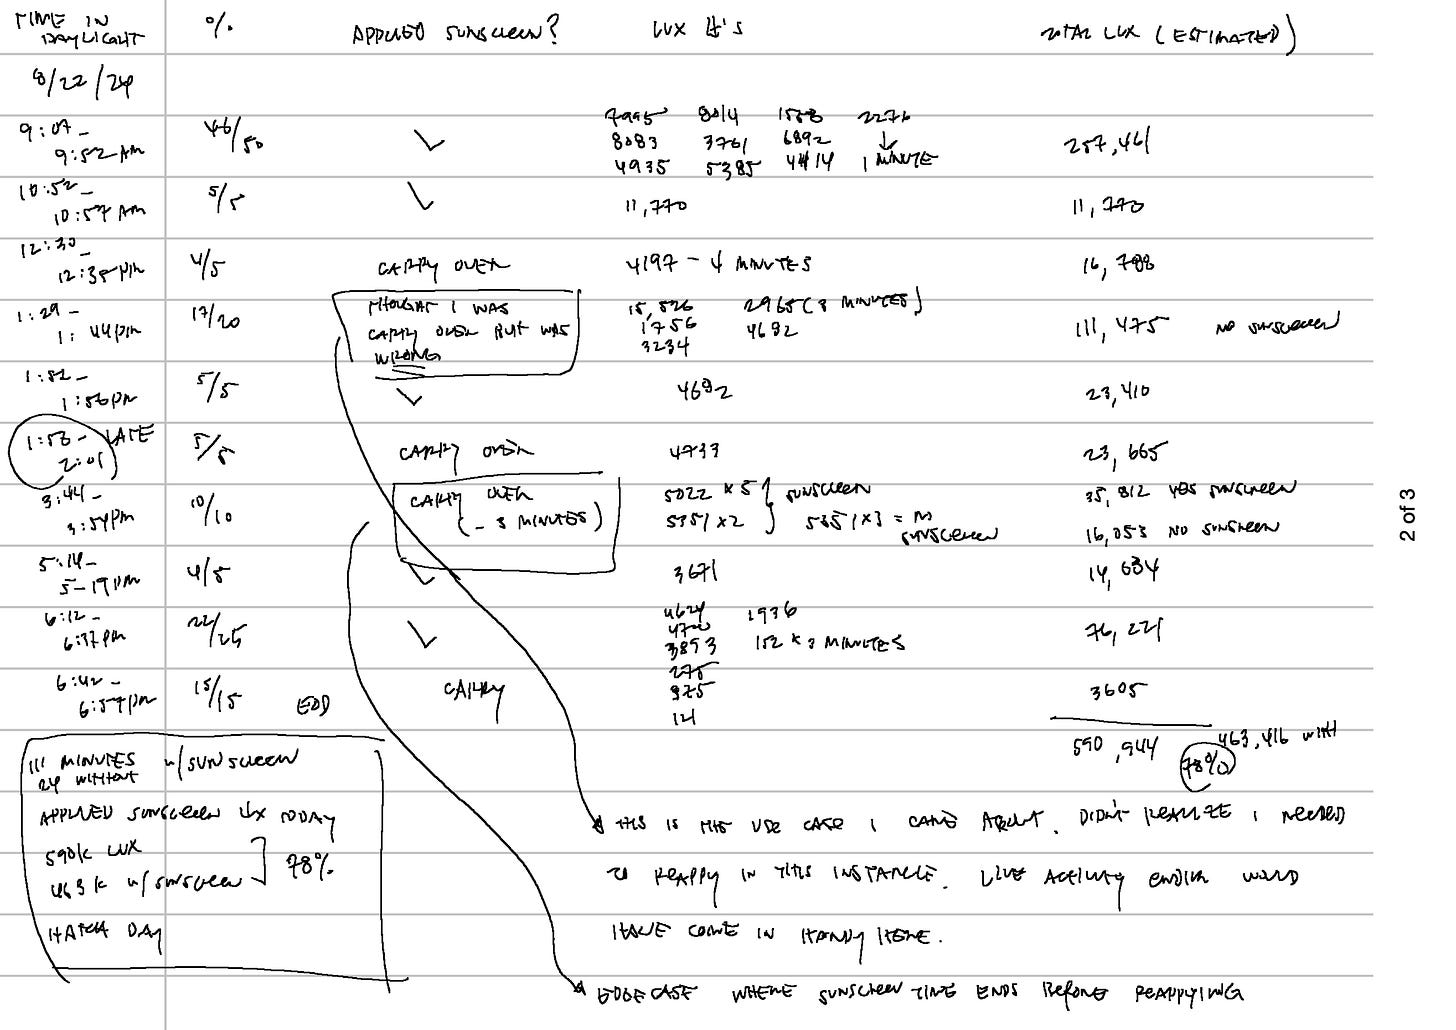 TIME IN DAYLIGHT % APPLIED SUNSCREEN? LUX #'S TOTAL LUX (ESTIMATED)
8/22/24
9:07- 9:52 AM 46/50 ✓ 7995 8014 1588 2276 ↓ 1 MINUTE
8083 3761 6892
4935 5385 4414
257,461
10:52- 10:57 AM 5/5 ✓ 11,770 11,770
12:30- 12:35 PM 4/5 CARRY OVER 4197 - 4 MINUTES 16,788
1:29- 1:44 PM 17/20 THOUGHT I WAS
CARRY OVER BUT WAS
WRONG
15,826 2965 (8 MINUTES)
1756 4682
3234
111,475 NO SUNSCREEN
1:52- 1:56 PM 5/5 ✓ 4682 23,410
1:58- LATE 2:01 5/5 CARRY OVER 4733 23,665
3:44- 3:54 PM 10/10 CARRY OVER
(- 3 MINUTES)
5022 x 5 } SUNSCREEN
5351 x 2 5351 x 3 = NO SUNSCREEN
35,812 YES SUNSCREEN
16,053 NO SUNSCREEN
5:14- 5-19 PM 4/5 ✓ 3671 14,684
6:12- 6:37 PM 22/25 ✓ 4624 1936
4700
3893 152 x 3 MINUTES
76,221
6:42- 6:57 PM 15/15 EOD CARRY 275
325
121
3605
590,944 463,416 WITH
78%
111 MINUTES w/SUNSCREEN
24 WITHOUT
APPLIED SUNSCREEN LUX TODAY
590k LUX
463k w/SUNSCREEN ] 78%
HATCH DAY
THIS IS THE USE CASE I CARE ABOUT. DIDN'T REALIZE I NEEDED
TO REAPPY IN THIS INSTANCE. LIVE ACTIVITY ENDING WOULD
HAVE COME IN HANDY HERE.
EDGE CASE WHERE SUNSCREEN TIME ENDS BEFORE REAPPYING
2 of 3